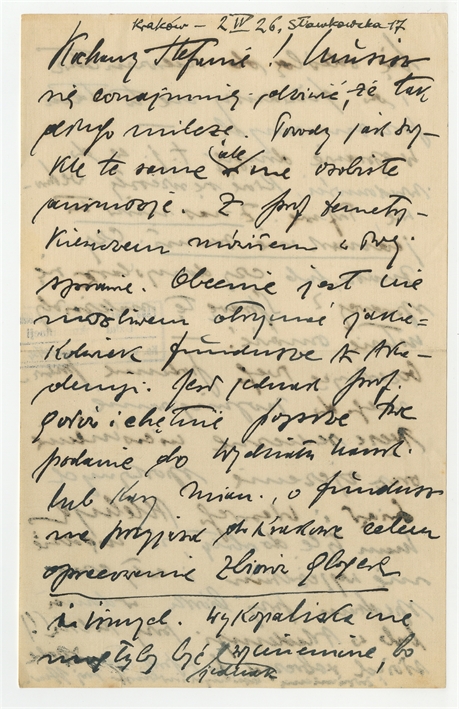 Kraków – 2 IV 26, Sławkowska 17
Kochany Stefanie! Musisz
się conajmniej dziwić, że tak
długo milczę. Powody jak zwy-
kle te same ale nie osobiste
animozje. Z prof Demetry-
kiewiczem mówiłem o Twej
sprawie. Obecnie jest nie
możliwem otrzymać jakie=
kolwiek fundusze z Aka-
demji. Jest jednak prof.
gotów i chętnie poprze Twe
podanie do Wydziału nauk.
lub Kasy Mian., o fundusz
na przyjazd do Krakowa celem
opracowania zbioru Glogera
i innych. Wykopaliska nie
mogłyby być wymieniane, bo
jednak